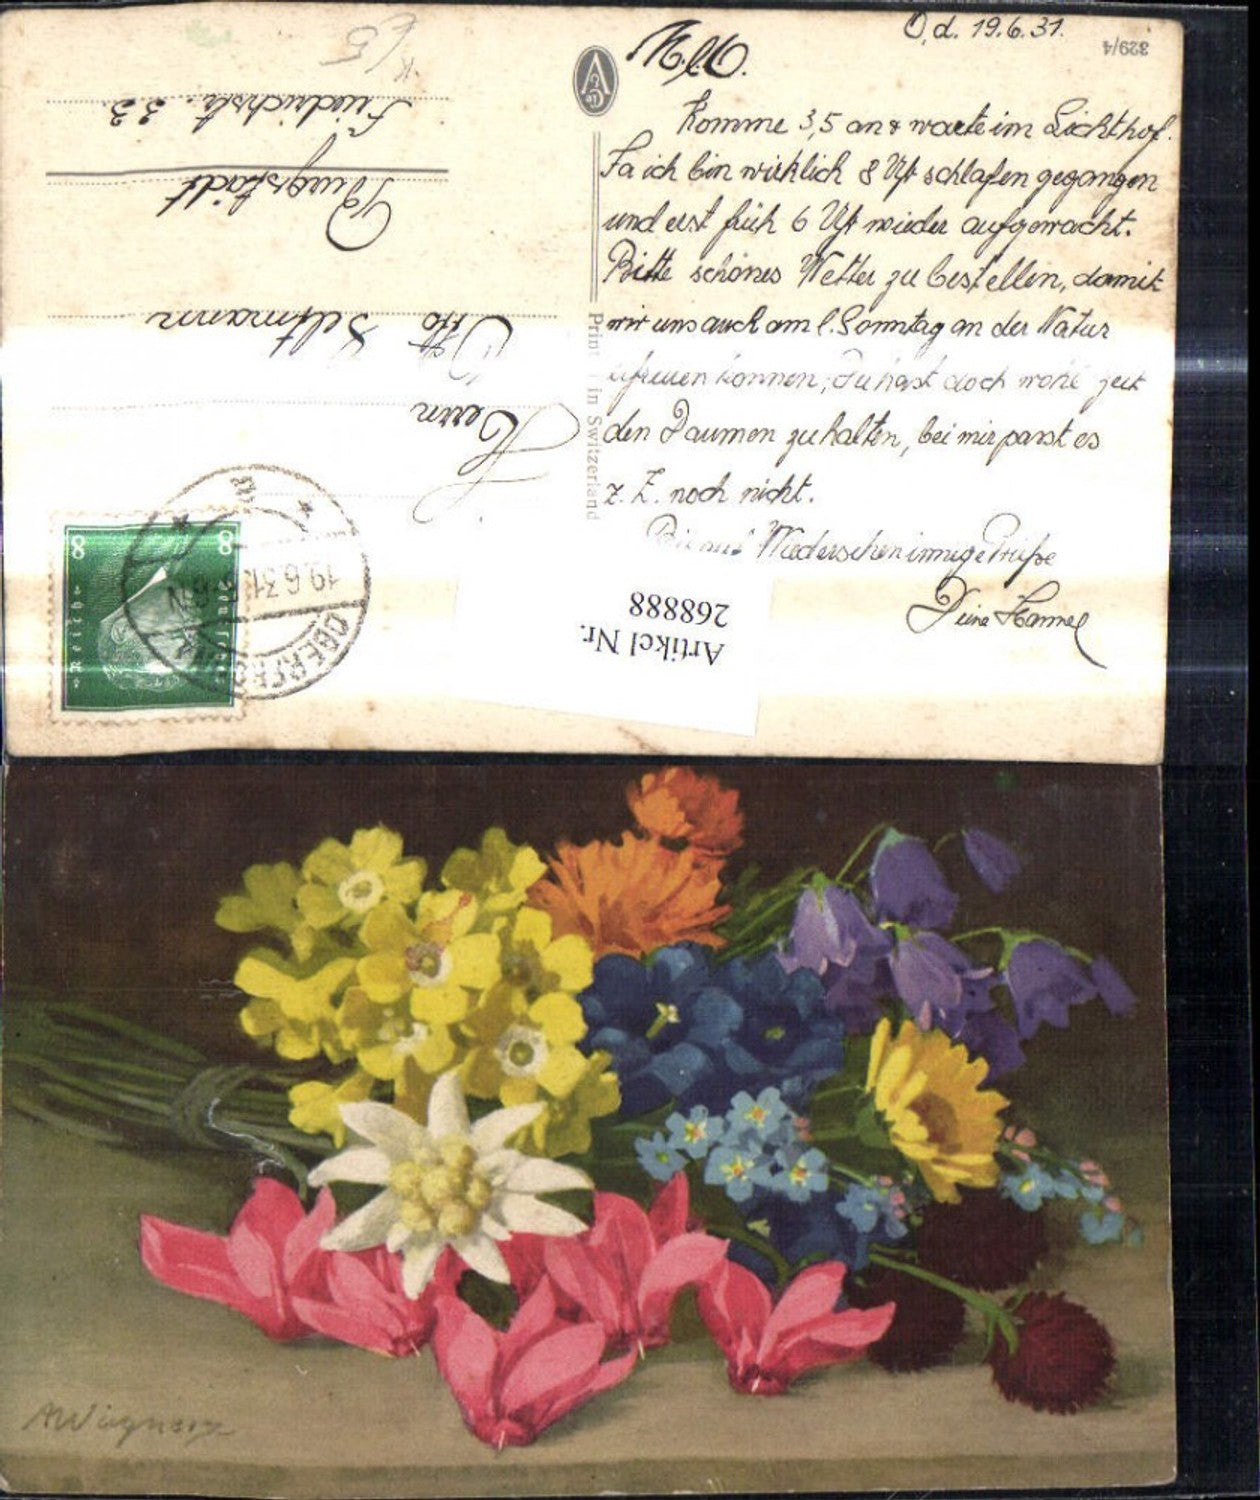 O, d. 19.6.31.
329/4
M. l. O.
Komme 3,5 an & warte im Lichthof.
Ja ich bin wirklich 8 Uhr schlafen gegangen
und erst früh 6 Uhr wieder aufgewacht.
Bitte schönes Wetter zu bestellen, damit
wir uns auch am l. Sonntag an der Natur
erfreuen können, Du hast doch wohl Zeit
den Daumen zu halten, bei mir passt es
z. Z. noch nicht.
Bis auf Wiedersehen innige Grüße
Deine Hannel
Printed in Switzerland
Herrn
Otto Seltmann
Burgstädt
Friedrichstr. 33.
8 8
Deutsches Reich
19.6.31
Artikel Nr.
268888
AWagner